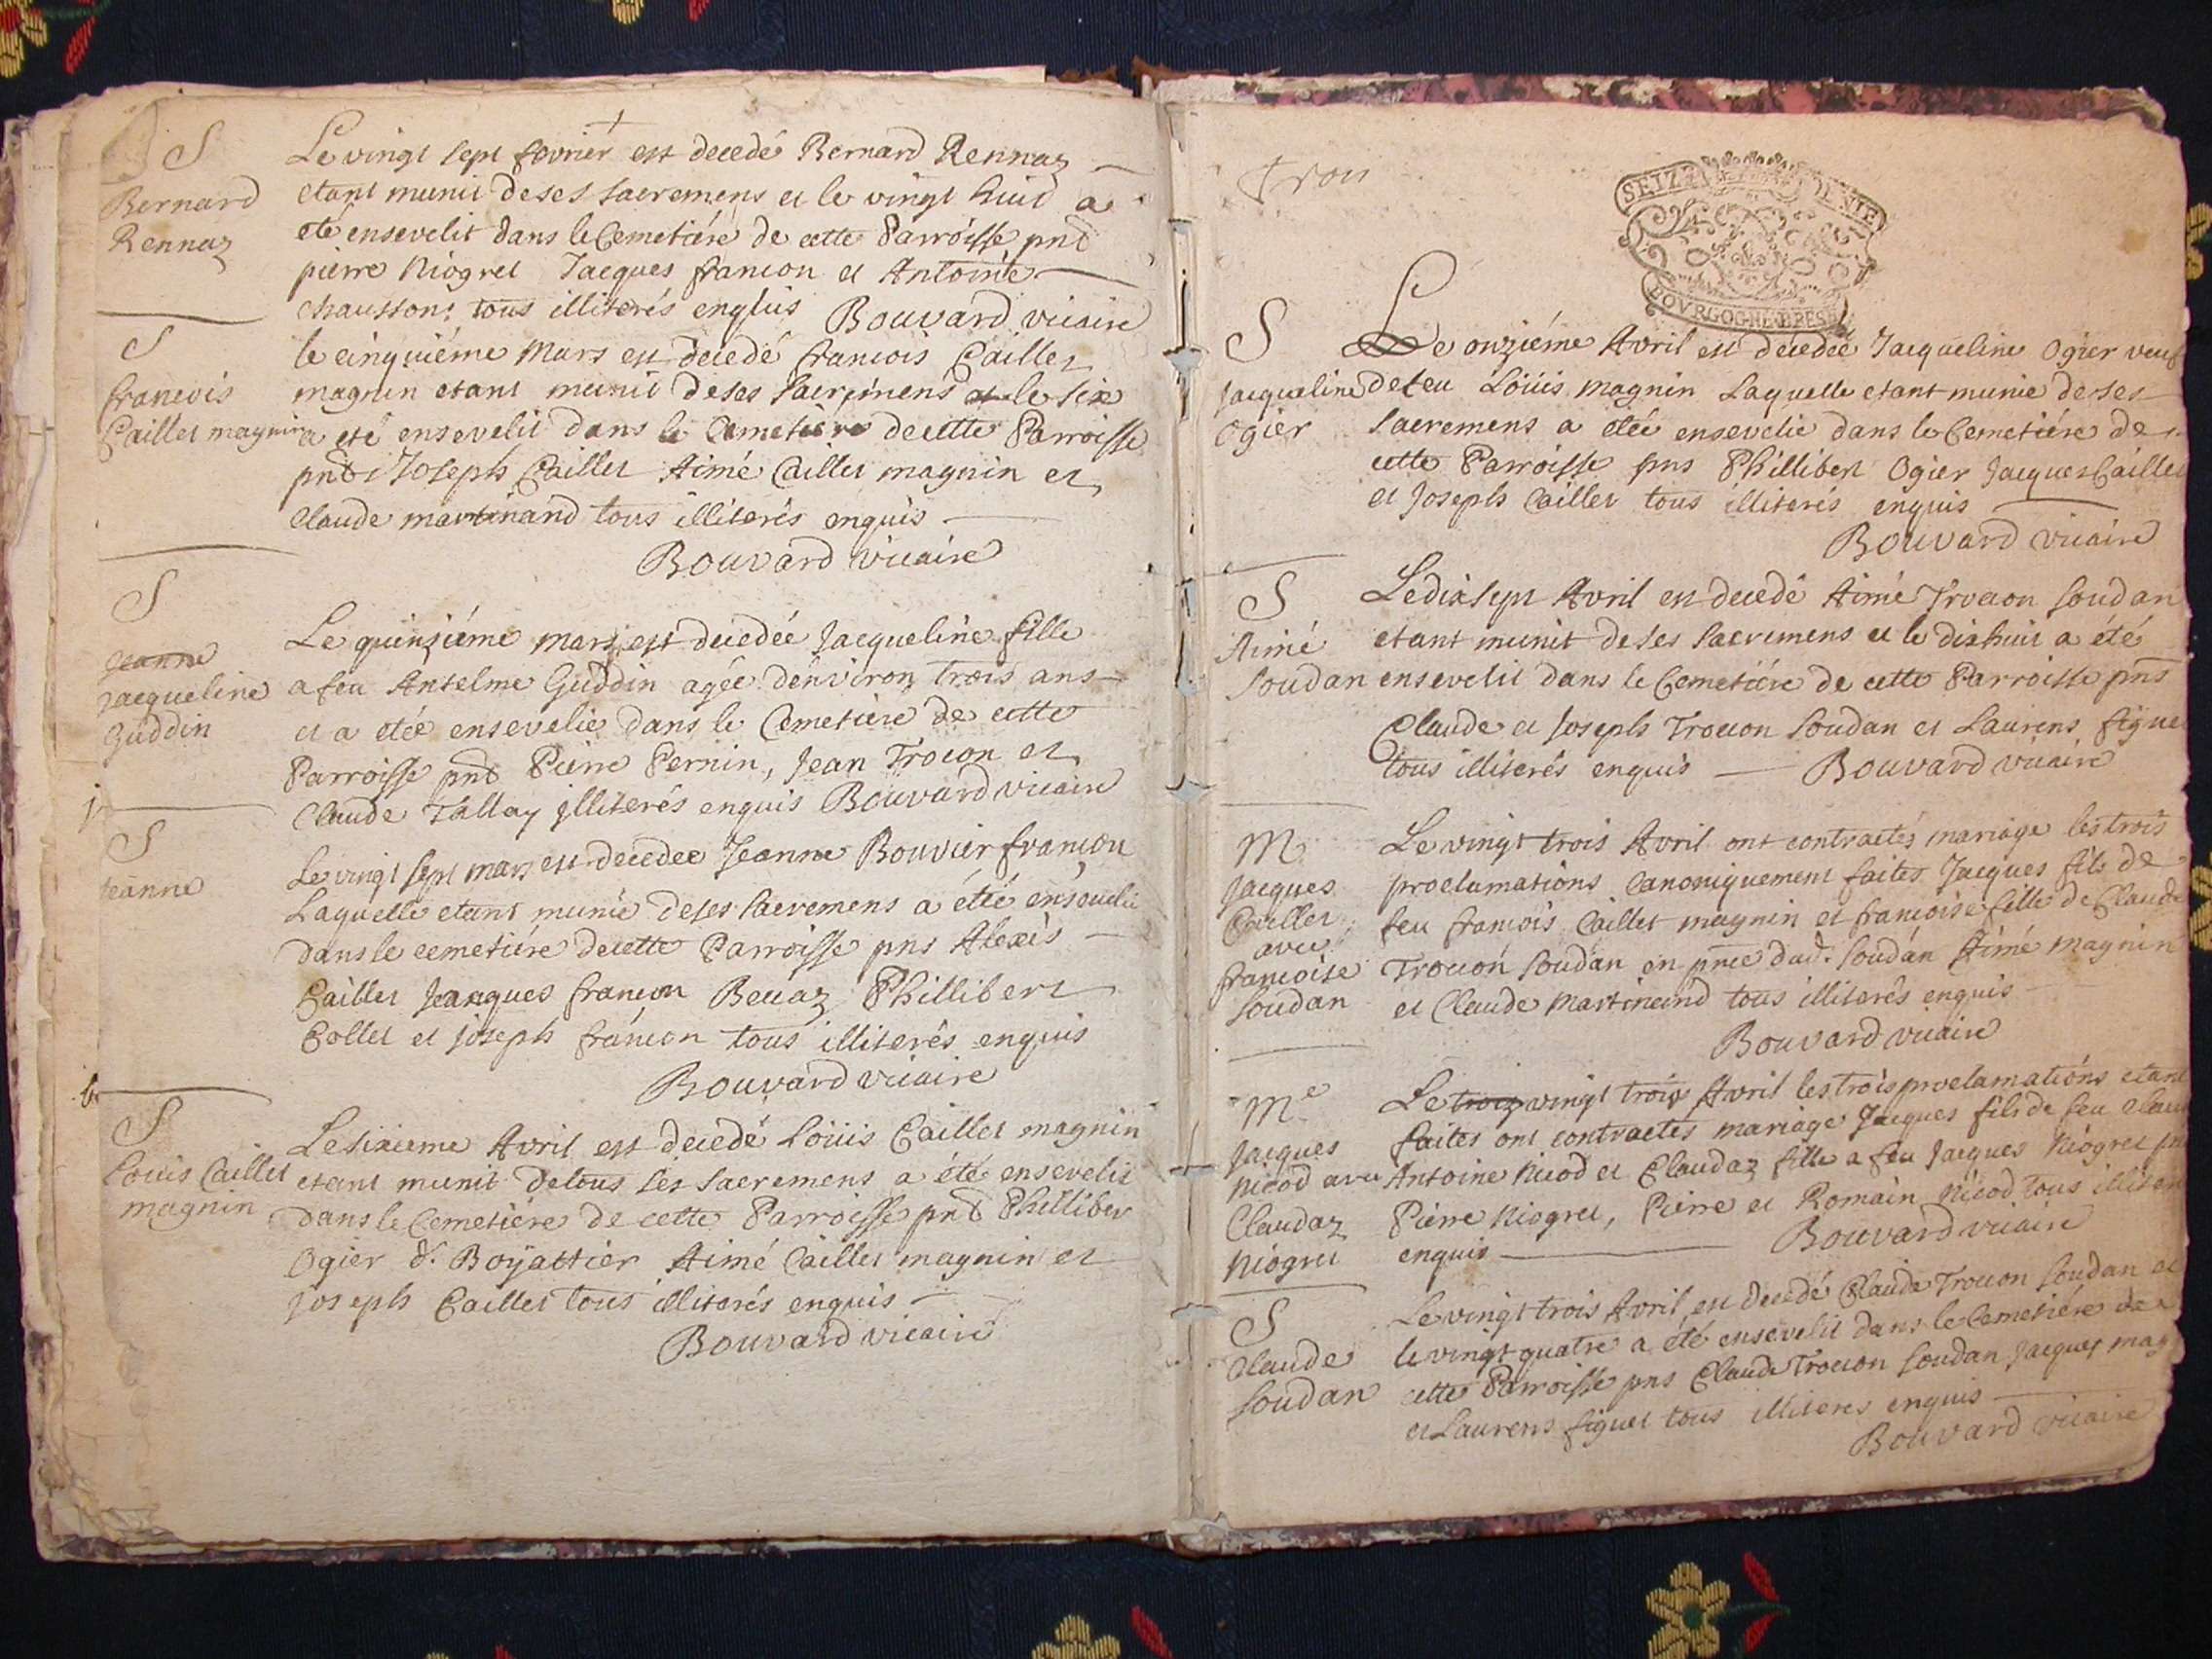 S
Bernard
Rennaz
Le vingt sept fevrier est decedé Bernard Rennaz
etant munit de ses sacremens et le vingt huit a
eté ensevelit dans le Cemetiére de cette Parroisse pnt
pierre Niogret Jacques francon et Antoine
chausson, tous illiterés enquis Bouvard vicaire
S
francois
Caillet magnin
le cinquiéme Mars est decedé francois Caillet
magnin etant munit de ses Sacremens et le six
a eté ensevelit dans le Cemetiére de cette Parroisse
pnt Joseph Caillet Aimé Caillet magnin et
Claude martinand tous illiterés enquis
Bouvard vicaire
S
Jeanne
Jacqueline
Guddin
Le quinziéme mars est decedée Jacqueline fille
a feu Antelme Guddin agée d'environ trois ans
et a etée ensevelie dans le Cemetiere de cette
Parroisse pnt Pierre Pernin, Jean Trocon et
Claude Tallay illiterés enquis Bouvard vicaire
S
Jeanne
Le vingt sept mars est decedee Jeanne Bouvier francon
Laquelle etant munie de ses sacremens a étée
dans le cemetiére de cette Parroisse pns Alexis
Caillet Jeanques francon Beuaz Phillibert
Collet et joseph francon tous illiterés enquis
Bouvard vicaire
S
Louis Caillet
magnin
Le sixieme Avril est decedé Loüis Caillet magnin
etant munit de tous ses sacremens a été ensevelit
dans le Cemetiere de cette Parroisse pnt Phillibert
Ogier d. Boyattier Aimé Caillet magnin et
joseph Caillet tous illiterés enquis
Bouvard vicaire
trois
SEIZE DENIE
BOURGOGNE BRESSE
S
Jacqueline
Ogier
Le onziéme Avril est decedée Jacqueline Ogier veuf
de feu Loüis magnin Laquelle etant munie de ses
sacremens a etée ensevelie dans le Cemetiére de
cette Parroisse pns Phillibert Ogier Jacques Caillet
et Joseph Caillet tous illiterés enquis
Bouvard vicaire
S
Aimé
Soudan
Le dix sept Avril est decedé Aimé Trocon Soudan
etant munit de ses sacremens et le dixhuit a été
ensevelit dans le Cemetiére de cette Parroisse pns
Claude et Joseph Trocon Soudan et Laurens figuet
tous illiterés enquis Bouvard vicaire
M
Jacques
Caillet
avec
francoise
Soudan
Le vingt trois Avril ont contractés mariage les trois
proclamations Canoniquement faites Jacques fils de
feu francois Caillet magnin et francoise fille de Claude
Trocon Soudan en pnce dud. Soudan Aimé magnin
et Claude Martinand tous illiterés enquis
Bouvard vicaire
Me
Jacques
Nicod avec
Claudaz
Niogret
Le troiz vingt trois Avril les trois proclamations etant
faites ont contractés mariage Jacques fils de feu Claude
Antoine Nicod et Claudaz fille a feu Jacques Niogret pn
Pierre Niogret, Pierre et Romain Nicod tous illiter
enquis Bouvard vicaire
S
Claude
Soudan
Le vingt trois Avril est decedé Claude Trocon Soudan et
le vingt quatre a été ensevelit dans le Cemetiére de
cette Parroisse pns Claude Trocon Soudan Jacques mag
et Laurens figuet tous illiteres enquis
Bouvard vicaire